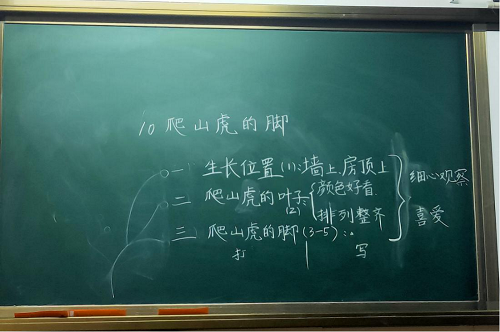 10 爬山虎的脚
一 生长位置(1):墙上.房顶上
二 爬山虎的叶子(2):颜色好看
排列整齐
三 爬山虎的脚(3-5):
写
细心观察
喜爱